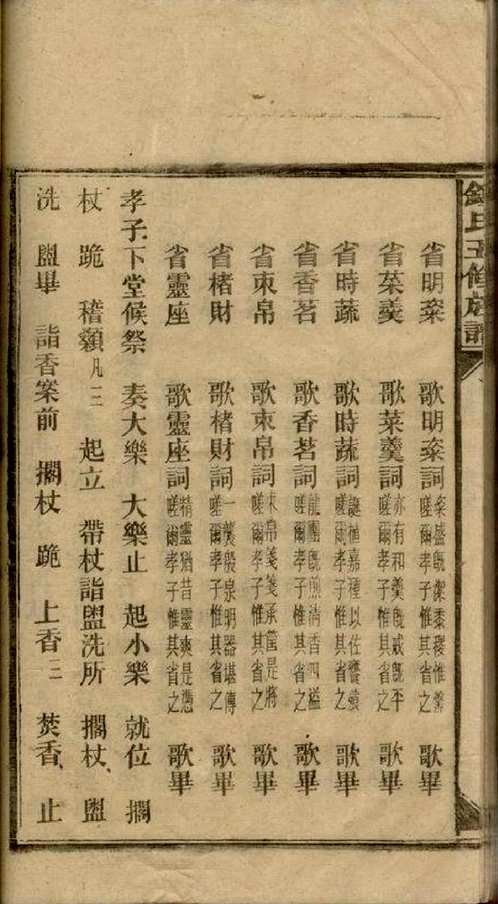 氏五修族譜
省明粢 歌明粢詞 粢盛既潔黍稷惟馨嗟爾孝子惟其省之 歌畢
省菜羹 歌菜羹詞 亦有和羹既戒既平嗟爾孝子惟其省之 歌畢
省時蔬 歌時蔬詞 誕植嘉種以佐饗嗟爾孝子惟其省之 歌畢
省香茗 歌香茗詞 龍團既煎清香四溢嗟爾孝子惟其省之 歌畢
省束帛 歌束帛詞 束帛箋箋承筐是將嗟爾孝子惟其省之 歌畢
省楮財 歌楮財詞 一獎殷泉明器堪傳嗟爾孝子惟其省之 歌畢
省靈座 歌靈座詞 精靈猶昔靈爽是憑嗟爾孝子惟其省之 歌畢
孝子下堂候祭 奏大樂 大樂止 起小樂 就位 擱
杖 跪 稽顙凡三 起立 帶杖詣盥洗所 擱杖 盥
洗 盥畢 詣香案前 擱杖 跪 上香三 焚香 止